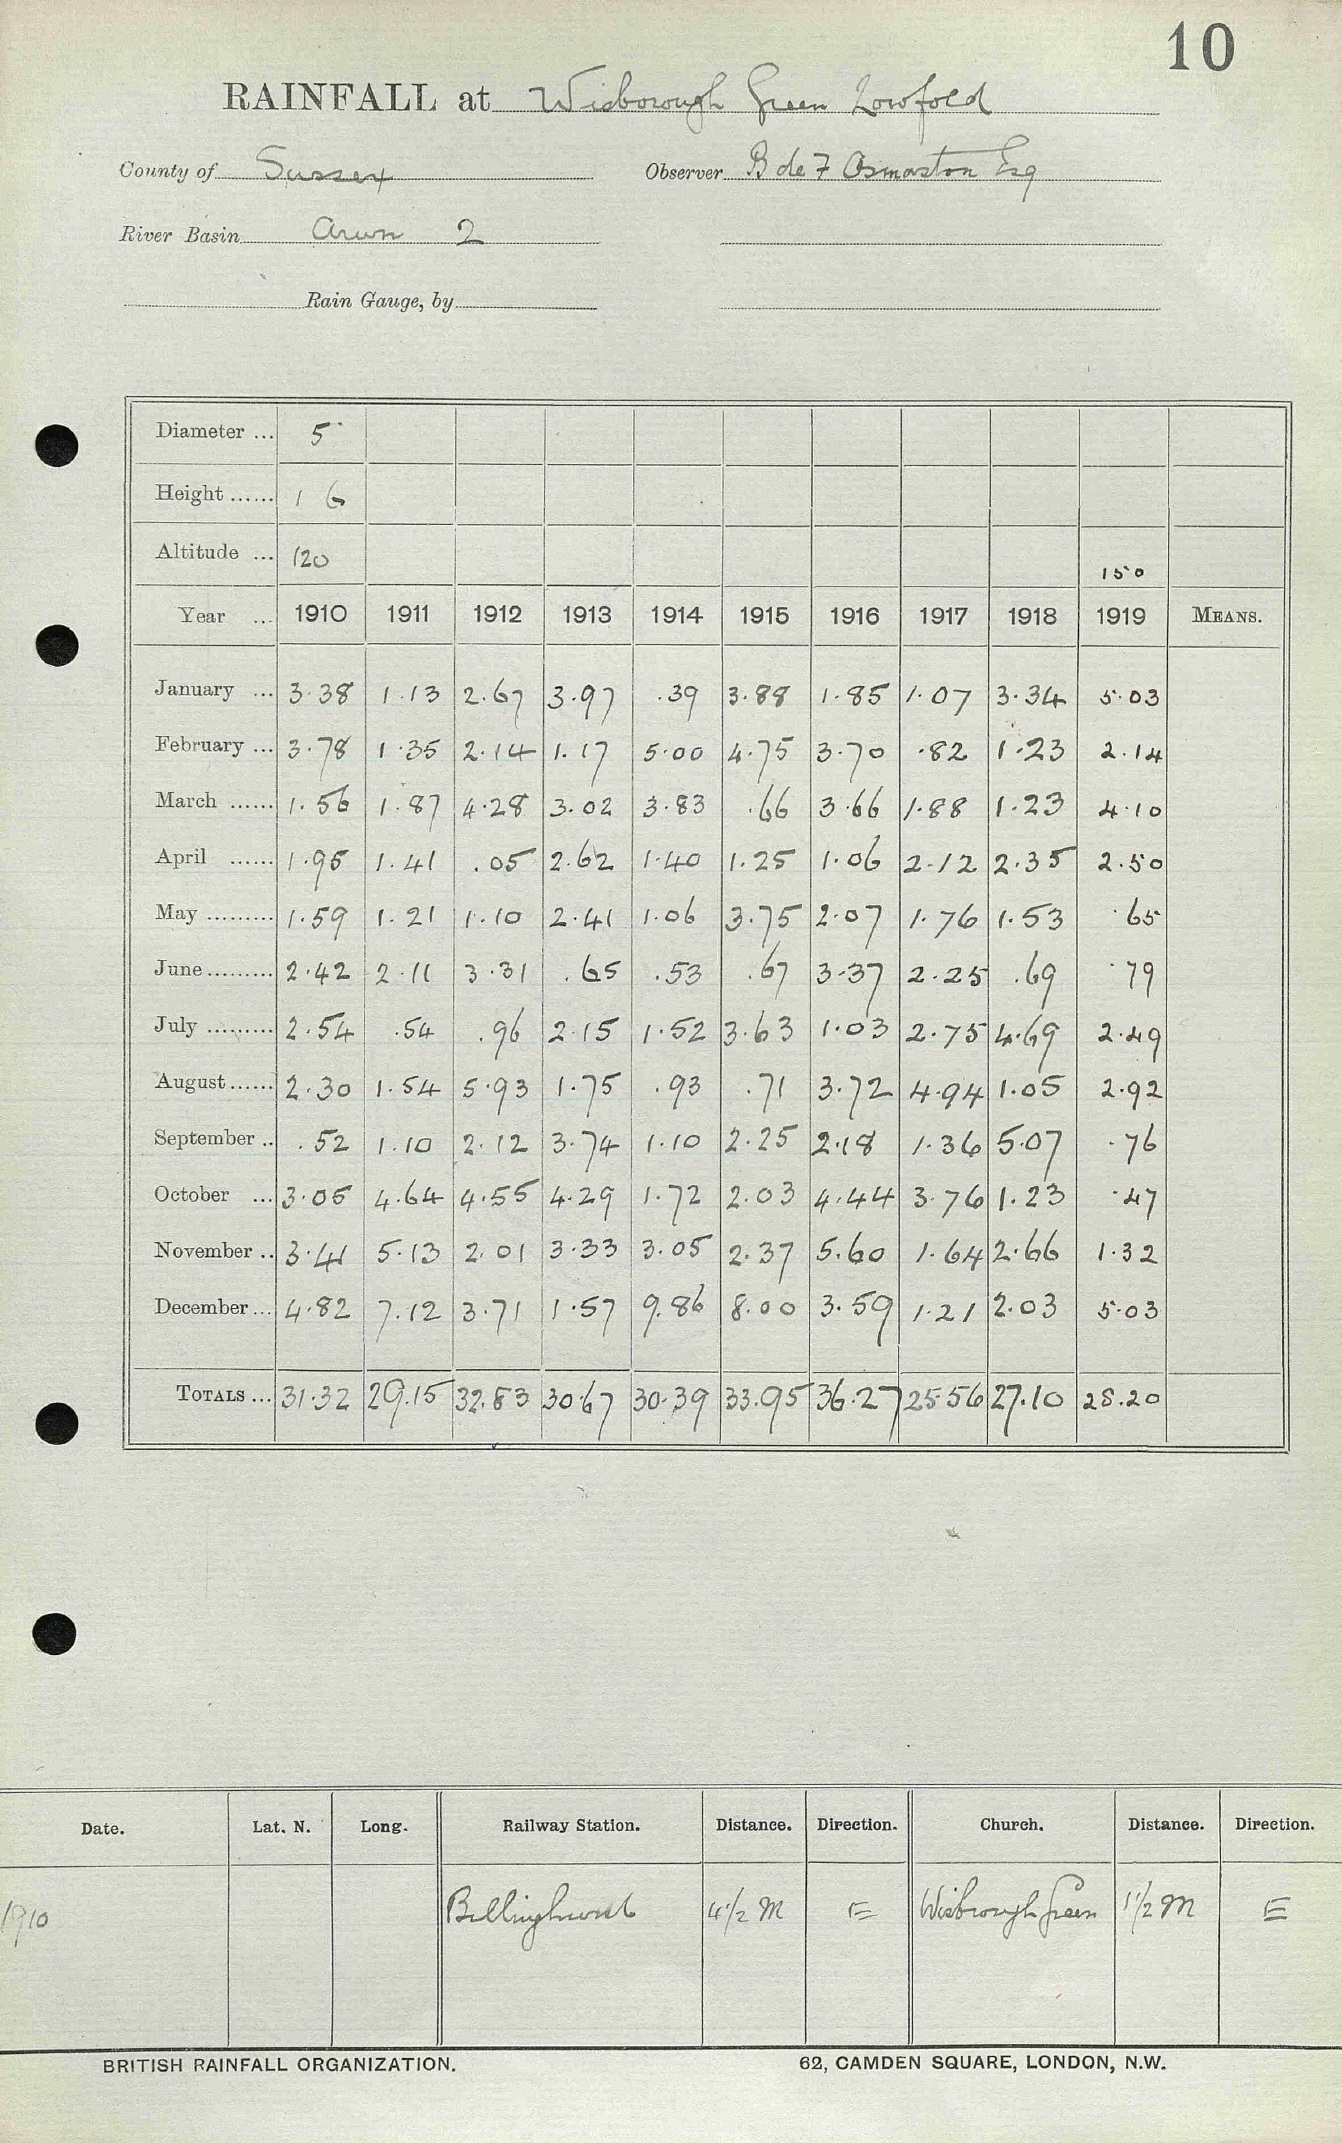 10
RAINFALL at Wisborough Green Lowfold
County of Sussex Observer B de F Osmaston Esq
River Basin Arun 2
Rain Gauge, by
Diameter ... 5
Height ...... 1 6
Altitude ... 120 150
Year ... 1910 1911 1912 1913 1914 1915 1916 1917 1918 1919 MEANS.
January ... 3.38 1.13 2.67 3.97 .39 3.88 1.85 1.07 3.34 5.03
February ... 3.78 1.35 2.14 1.17 5.00 4.75 3.70 .82 1.23 2.14
March ...... 1.56 1.87 4.28 3.02 3.83 .66 3.66 1.88 1.23 4.10
April ...... 1.95 1.41 .05 2.62 1.40 1.25 1.06 2.12 2.35 2.50
May ......... 1.59 1.21 1.10 2.41 1.06 3.75 2.07 1.76 1.53 .65
June ......... 2.42 2.11 3.31 .65 .53 .67 3.37 2.25 .69 .79
July ......... 2.54 .54 .96 2.15 1.52 3.63 1.03 2.75 4.69 2.49
August ...... 2.30 1.54 5.93 1.75 .93 .71 3.72 4.94 1.05 2.92
September .. .52 1.10 2.12 3.74 1.10 2.25 2.18 1.36 5.07 .76
October ... 3.05 4.64 4.55 4.29 1.72 2.03 4.44 3.76 1.23 .47
November .. 3.41 5.13 2.01 3.33 3.05 2.37 5.60 1.64 2.66 1.32
December ... 4.82 7.12 3.71 1.57 9.86 8.00 3.59 1.21 2.03 5.03
TOTALS ... 31.32 29.15 32.83 30.67 30.39 33.95 36.27 25.56 27.10 28.20
Date. Lat. N. Long. Railway Station. Distance. Direction. Church. Distance. Direction.
1910 Billinghurst 4 1/2 M E Wisborough Green 1 1/2 M E
BRITISH RAINFALL ORGANIZATION. 62, CAMDEN SQUARE, LONDON, N.W.